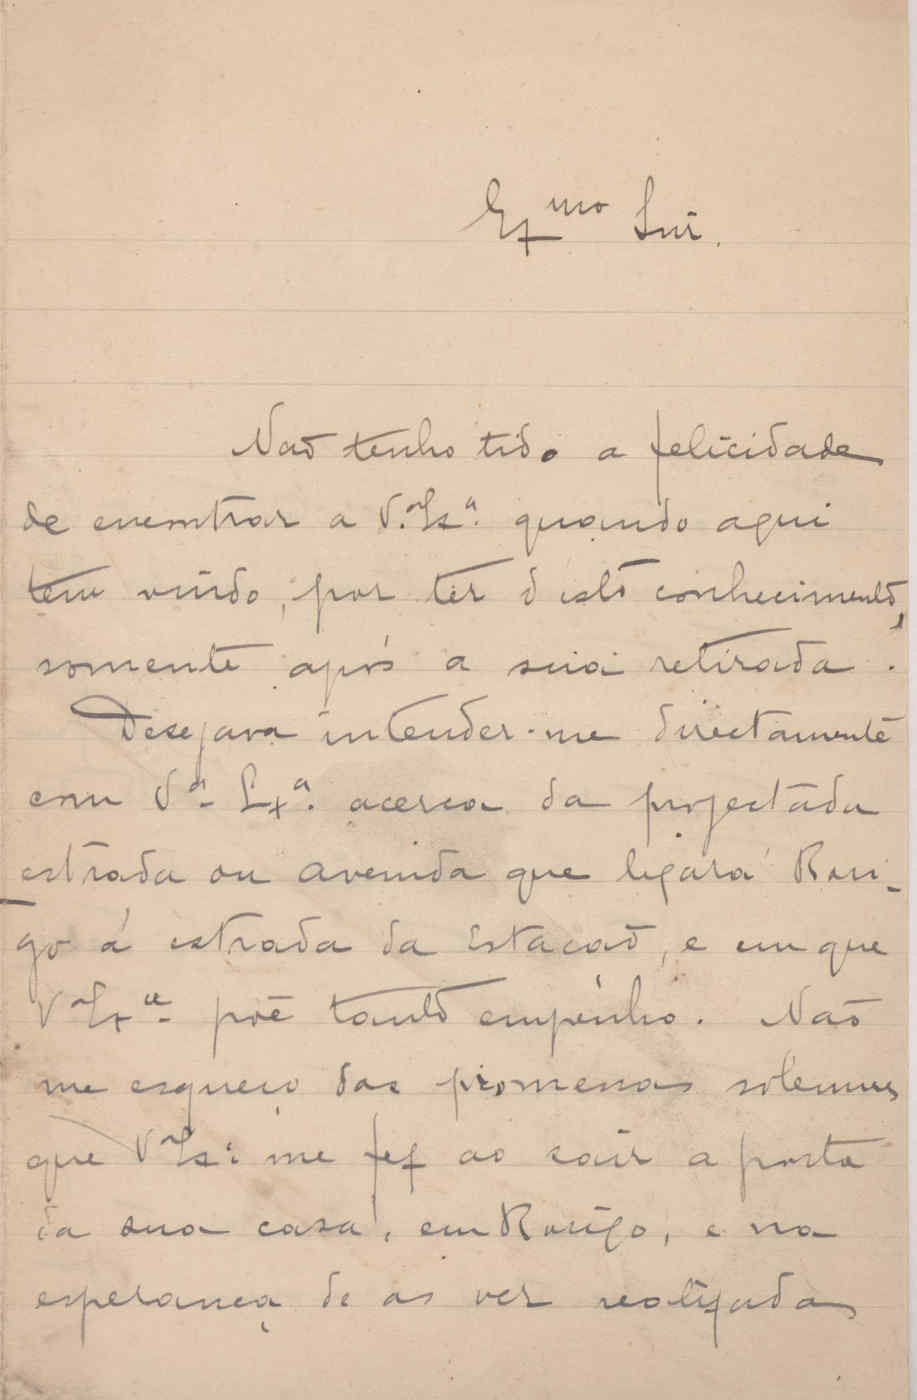 Ex.mo Snr.
Não tenho tido a felicidade
de encontrar a V. Exa. quando aqui
tem vindo, por ter d'isto conhecimento,
somente após a sua retirada.
Desejava intender-me directamente
com Va. Exa. acerca da projectada
estrada ou avenida que ligará Rori-
go á estrada da Estação, e em que
V Exa. põe tanto empênho. Não
me esqueço das promessas solemnes
que V Exa. me fez ao sair a porta
da sua casa, em Rorigo, e na
esperança de as ver realizadas